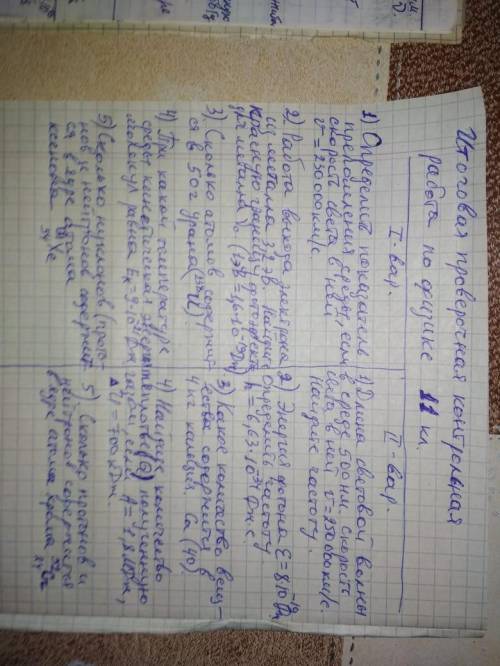 Итоговая проверочная контрольная
работа по физике 11 кл.
I-вар.
1) Определить показатель
преломления среды, если
скорость света в ней
v = 250000 км/с
2) Работа выхода электрона
из металла эВ. Найдите
красную границу фотоэффекта
для металла
3) Сколько атомов содержит-
ся в 50 г урана U.
4) При какой температуре
средн кинетическая энергия
молекул равна Eк = Дж
5) Сколько нуклонов (прото-
нов и нейтронов содержит-
ся в ядре атома
ксенона 54 Xe
II-вар.
1) Длина световой волны
в среде 500 нм. Скорость
света в ней v = 250000 км/с.
Найдите частоту.
2) Энергия фотона Ɛ = 8·10⁻¹⁹ Дж
Определить частоту.
h = 6,63·10⁻³⁴ Дж·с
3) Какое количество веще-
ства содержится в
4 кг кальция Ca (40)
4) Найдите количество
теплоты (Q) полученную
газом, если A =
ΔU = 700 кДж.
5) Сколько протонов и
нейтронов содержится
в ядре атома хрома 24 Cr